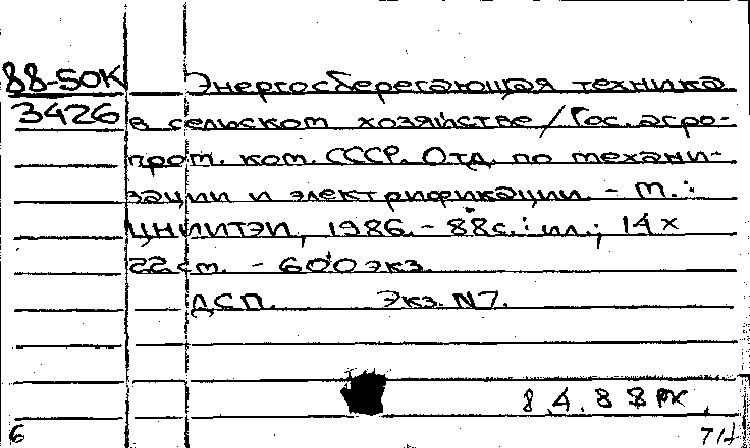 88-50К
3426
Энергосберегающая техника
в сельском хозяйстве / Гос. агро-
пром. ком. СССР. Отд. по механи-
зации и электрификации. - М.:
ЦНИИТЭИ, 1986. - 88с.: ил.; 14 х
22 см. - 600 экз.
ДСП. Экз. N7.
8.4.88
6